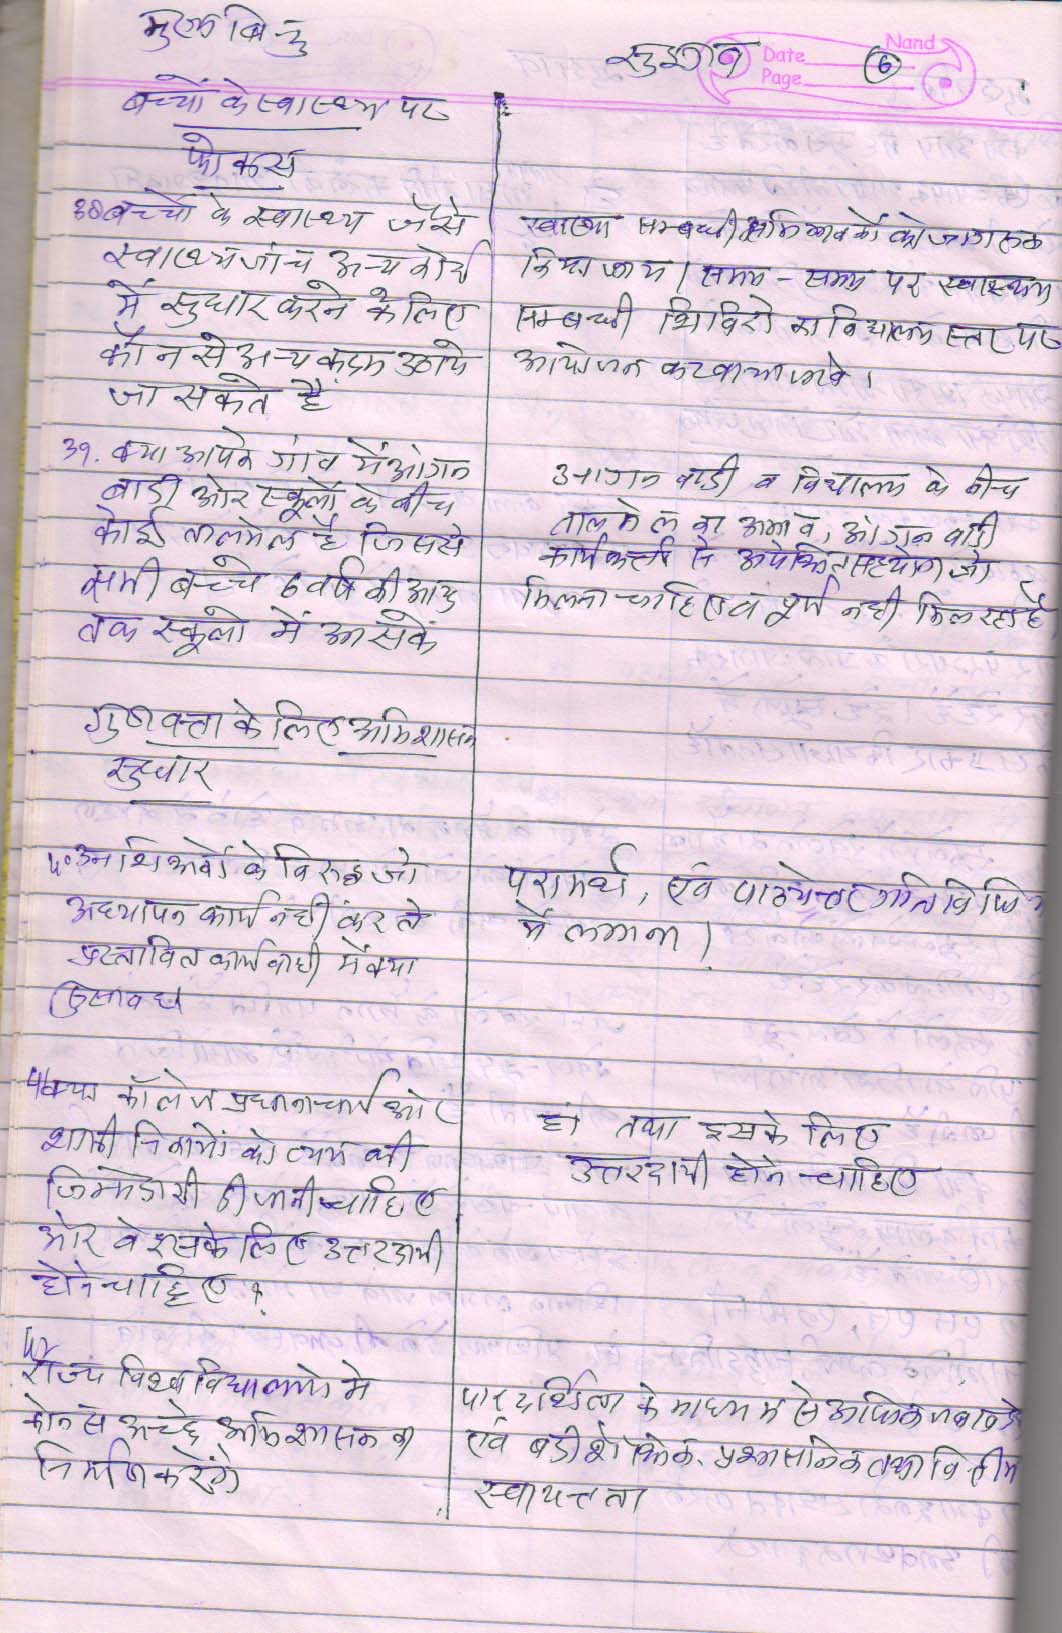 मुख्य बिन्दु
सुझाव
Nand
Date
Page
6
बच्चों के स्वास्थ्य पर
फोकस
38 बच्चों के स्वास्थ्य जैसे
स्वास्थ्य जांच अन्य कार्य
में सुधार करने के लिए
कौन से अन्य कदम उठाये
जा सकते है
स्वास्थ्य सम्बन्धी अभिभावकों को जागरूक
किया जाय। समय - समय पर स्वास्थ्य
सम्बन्धी शिविरो का विद्यालय स्तर पर
आयोजन करवाया जावे।
39. क्या आपके गांव में आंगन
बाडी और स्कूलों के बीच
कोई तालमेल है जिससे
सभी बच्चे 6 वर्ष की आयु
तक स्कूलो में आ सकें
आंगन बाडी व विद्यालय के बीच
ताल मेल का अभाव, आंगन बाडी
कार्यकर्ता से अपेक्षित सहयोग जो
मिलना चाहिए वं पूर्ण नही मिल रहा है
गुणवत्ता के लिए अभिशासन
सुधार
40 उन शिक्षकों के विरुद्ध जो
अध्यापन कार्य नहीं करते
प्रस्तावित कार्यवाही में क्या
परामर्श, एवं पाठ्येत्तर गतिविधि
में लगाना।
41 क्या कॉलेज प्रधानाचार्य और
शासी निकायों को व्यय की
जिम्मेदारी दी जानी चाहिए
और वे इसके लिए उत्तरदायी
होने चाहिए?
हां तथा इसके लिए
उत्तरदायी होने चाहिए
42
राज्य विश्व विद्यालयो मे
कौन से अच्छे अभिशासन का
निर्माण करेंगे
पारदर्शिता के माध्यम से अधिक जवाबदेही
एवं बडी शैक्षिक, प्रशासनिक तथा वित्तीय
स्वायत्तता